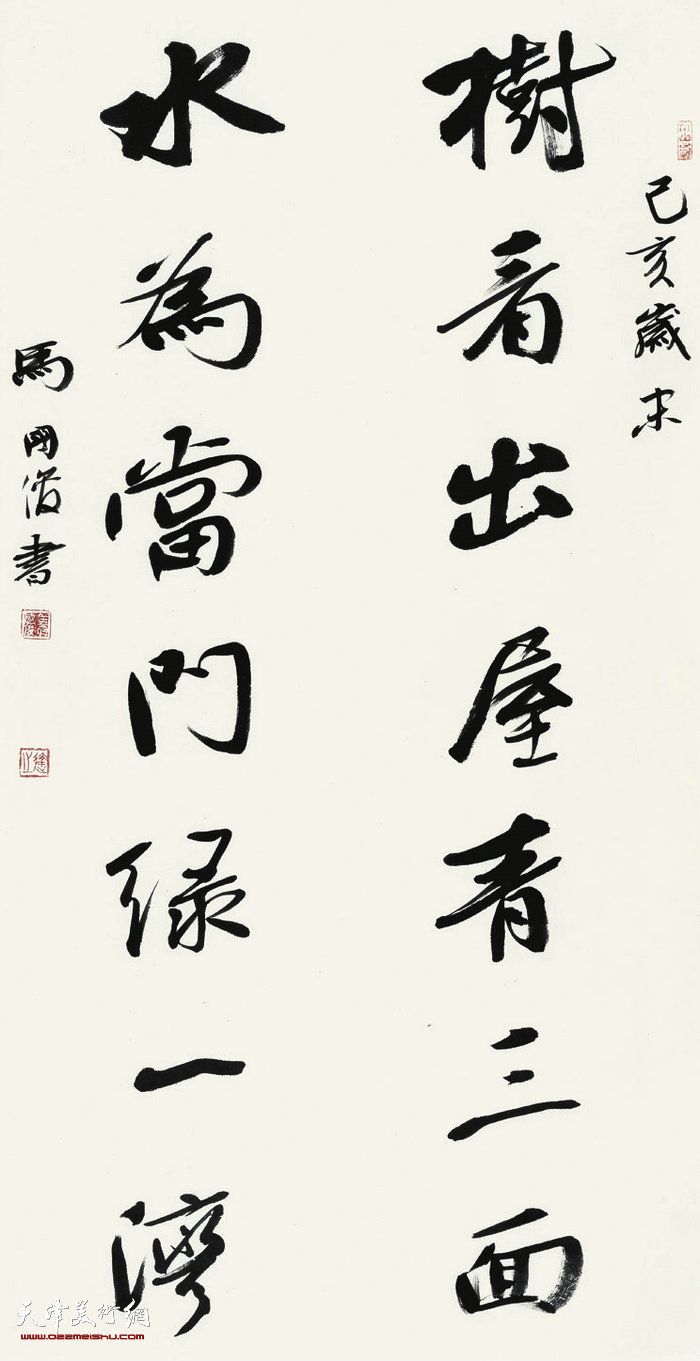 己亥歲末
樹看出屋青三面
水為當門绿一灣
馬國俊書
天津美術網
www.022meishu.com